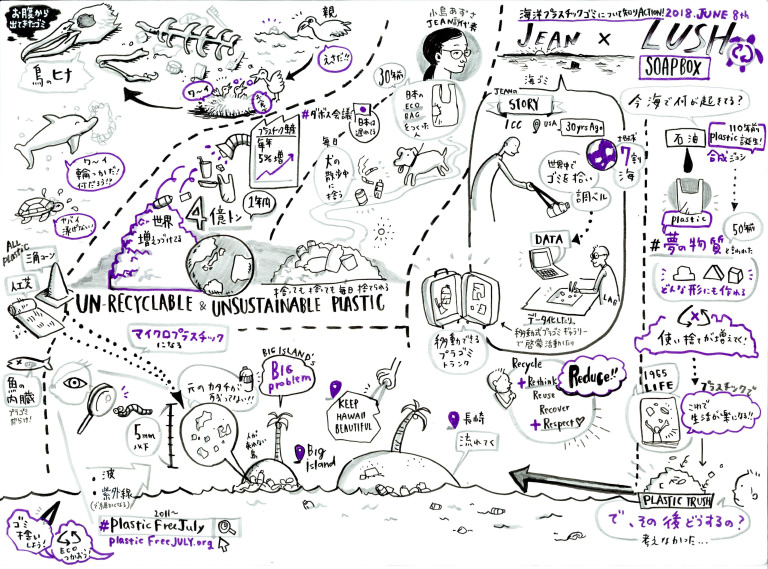 海洋プラスチックゴミについて知りACTION!! 2018.JUNE 8th
JEAN × LUSH
SOAPBOX
小島あずさ
JEAN代表
お腹から
出てきたゴミ
鳥のヒナ
親
えさだ!!
ワーイ
ワーイ
輪っかだ!
何だろう!?
ヤバイ
泳げない!
#ダボス会議
日本は
遅れてる
プラスチック生産
毎年
5%増
4億トン
1年間
世界
増えつづけてる
30年前
日本の
ECO
BAG
をつくった
人
毎日
犬の
散歩中
に
拾う
捨てても 捨てても 毎日 捨てられる
UN-RECYCLABLE & UNSUSTAINABLE PLASTIC
海ゴミ
JEANの
STORY
ICC @ USA 30yrs Ago
地球の
7割
海
世界中で
ゴミを拾い
調べル
DATA
LAB
データ化したり、
移動式プラゴミギャラリー
で啓蒙活動したり
移動できる
プラゴミ
トランク
Recycle
+Rethink
Reuse
Recover
+Respect
Reduce!!
今 海で何が起きてる?
石油
110年前
plastic誕生!
合成
plastic
50年前
#夢の物質と言われた
どんな形にも作れる
使い捨てが増えて!
1955
LIFE
プラスチックで
これで
生活が楽になる!!
PLASTIC TRUSH
で、その後どうするの?
考えなかった...
ALL
plastic
三角コーン
人工芝
マイクロプラスチック
になる
魚の
内臓
5mm
以下
・波
・紫外線
元のカタチが
BIG ISLAND'S
Big
problem
人が
来れない
島
Big
Island
KEEP
HAWAII
BEAUTIFUL
長崎
流れてく
ゴミ
拾い
しよう!
ECO
つかおう!
2011~
#Plastic Free July
plastic FreeJULY.org